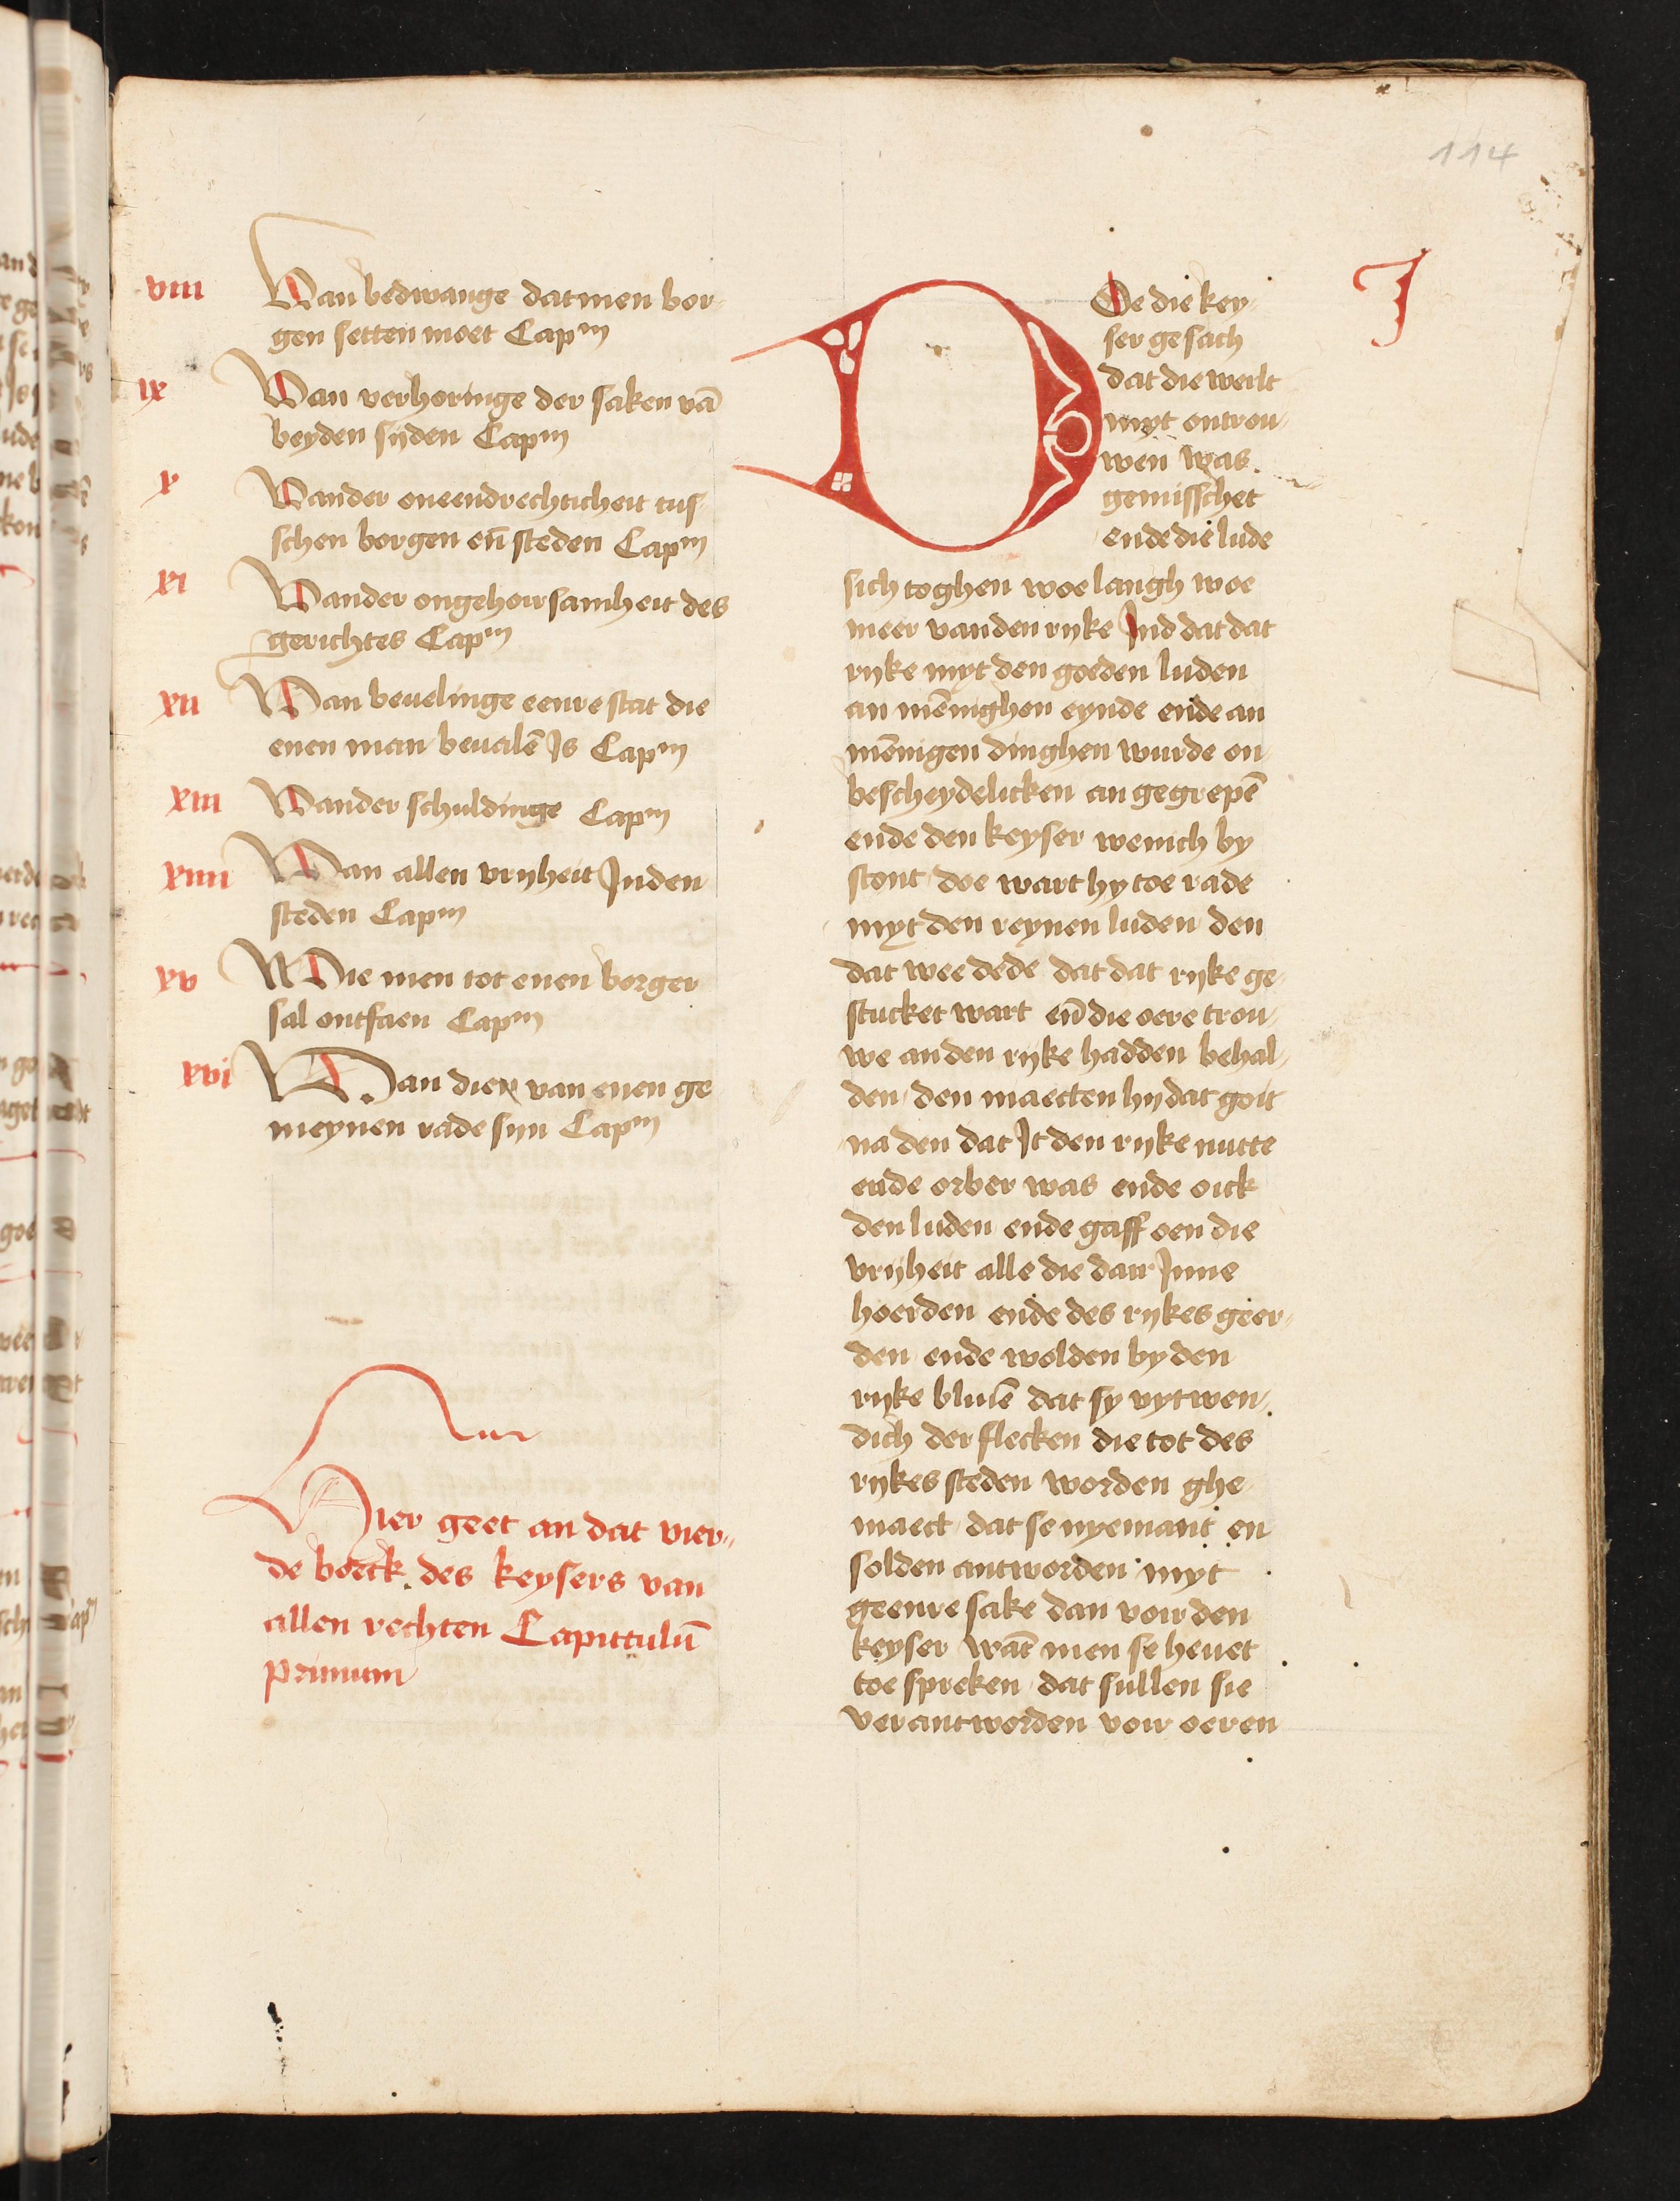 114
viii Van bedwange datmen bor-
gen setten moet Capm
ix Van verhoringe der saken vā
beyden sijden Capm
x Vander oneendrechticheit tus-
schen borgen eñ steden Capm
xi Vander ongehoirsamheit des
gerichtes Capm
xii Van beuelinge eenre stat die
enen man beualē Is Capm
xiii Vander schuldinge Capm
xiiii Van allen vrijheit Inden
steden Capm
xv Wie men tot enen borger
sal ontfaen Capm
xvi Van dien van enen ge
meynen rade sijn Capm
Hier geet an dat vier-
de boeck des keysers van
allen rechten Capittulū
Primum
I
Doe die key-
ser gesach
dat die werlt
myt ontrou-
wen was
gemisschet
ende die lude
sich toghen woe langh woe
meer vanden rijke Ind dat dat
rijke myt den goeden luden
an mēnighen eynde ende an
mēnigen dinghen wurde on
bescheydelicken an gegrepē
ende den keyser wenich by
stont doe wart hy toe rade
myt den reynen luden den
dat wee dede dat dat rijke ge-
stucket wart eñ die oere trou-
we an den rijke hadden behal-
den den maecten hy dat goit
na den dat It den rijke nutte
ende orber was ende oick
den luden ende gaff oen die
vrijheit alle die dair Inne
hoerden ende des rijkes geer-
den ende wolden by den
rijke bliuē dat sy vytwen-
dich der flecken die tot des
rijkes steden worden ghe
maect dat se nyemant en
solden antworden myt
geenre sake dan voir den
keyser wāt men se heuet
toe spreken dat sullen sie
verantworden voir oeren